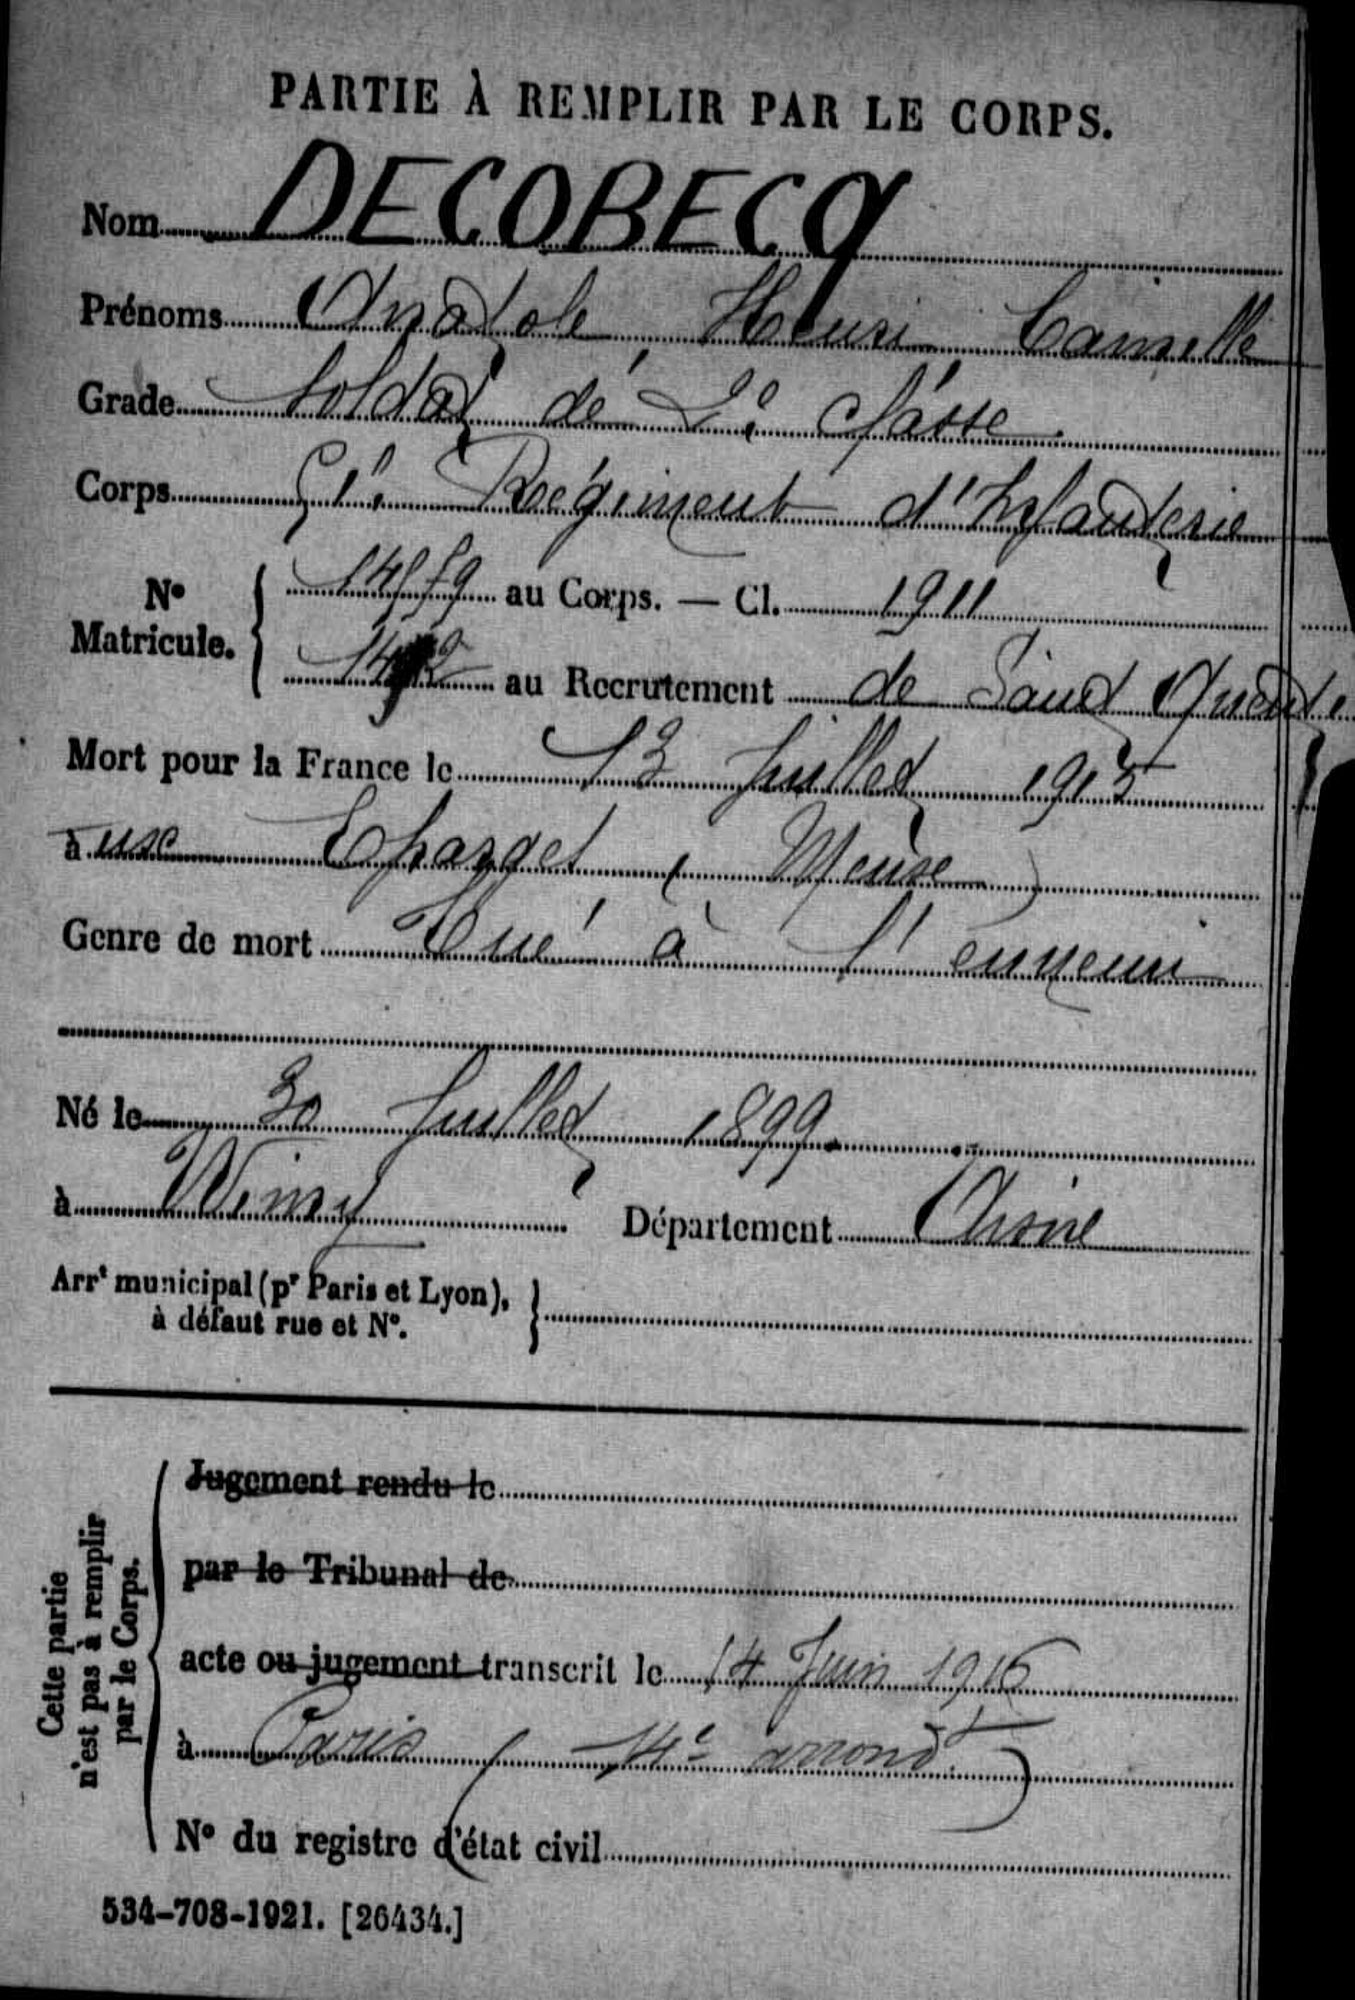 PARTIE À REMPLIR PAR LE CORPS.
Nom DECOBECQ
Prénoms Anatole Henri Camille
Grade Soldat de 2e classe
Corps Régiment d'Infanterie
No Matricule. au Corps. — Cl. 1911
au Recrutement de Saint Quentin
Mort pour la France le 13 Juillet 1915
à aux Eparges (Meuse)
Genre de mort Tué à l'ennemi
Né le 30 Juillet 1899
à Wimy Département Aisne
Arrt municipal (pr Paris et Lyon),
à défaut rue et No.
Cette partie
n'est pas à remplir
par le Corps.
Jugement rendu le
par le Tribunal de
acte ou jugement transcrit le 14 Juin 1916
à Paris (14e arrondt)
No du registre d'état civil
534-708-1921. [26434.]